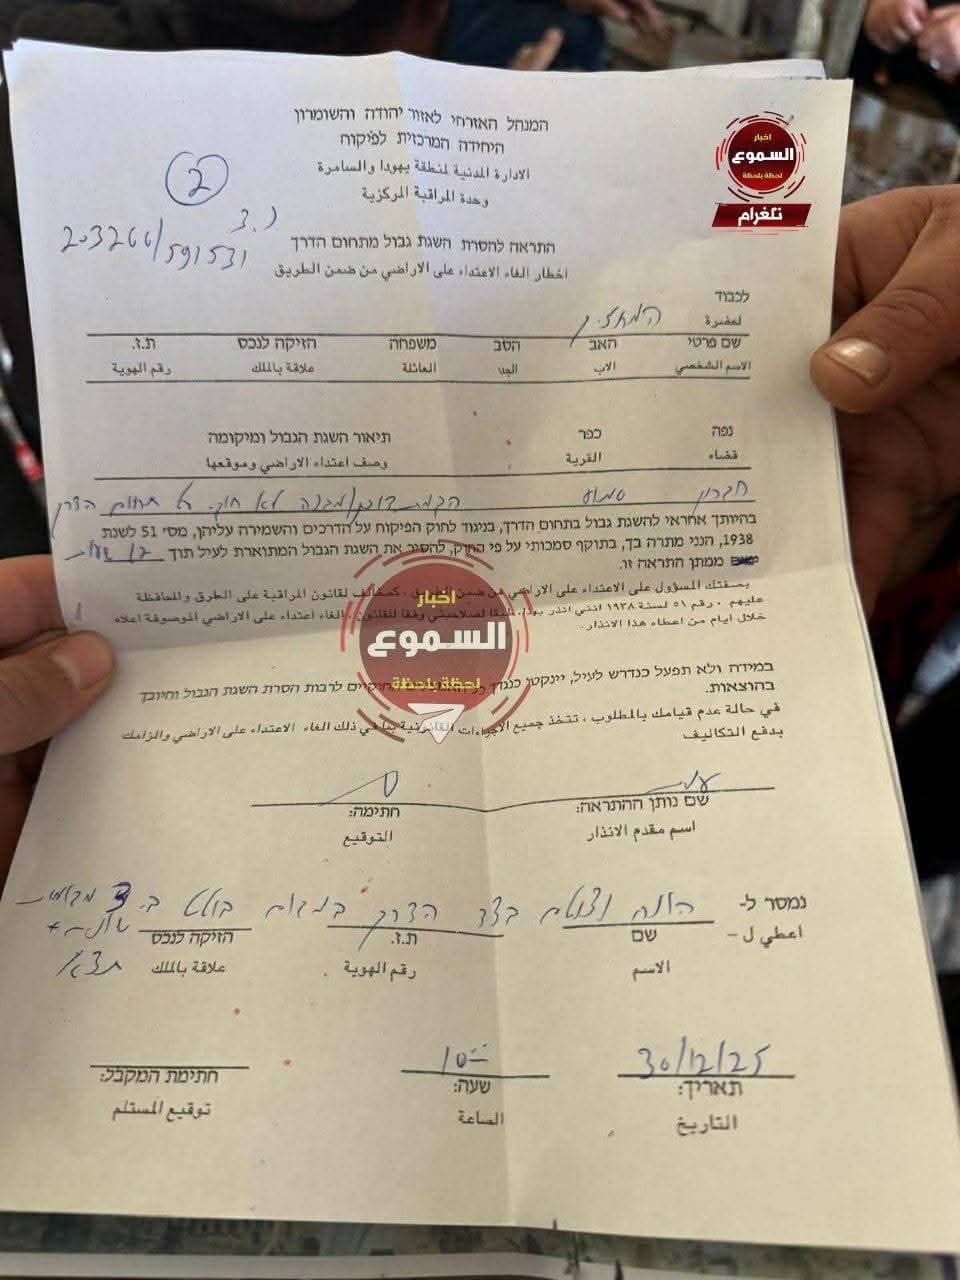 המנהל האזרחי לאזור יהודה והשומרון
היחידה המרכזית לפיקוח
الادارة المدنية لمنطقة يهودا والسامرة
وحدة المراقبة المركزية
2
203266/591531
התראה להסרת השגת גבול מתחום הדרך
اخطار الغاء الاعتداء على الاراضي من ضمن الطريق
اخبار
السموع
لحظة بلحظة
تلغرام
לכבוד
لحضرة
המחזיק
שם פרטי האב הסב משפחה הזיקה לנכס ת.ז.
الاسم الشخصي الاب الجد العائلة علاقة بالملك رقم الهوية
נפה כפר תיאור השגת הגבול ומיקומה
قضاء القرية وصف اعتداء الاراضي وموقعها
חברון סמוע הקמת דוכן/מבנה לא חוקי על תחום הדרך
בהיותך אחראי להשגת גבול בתחום הדרך, בניגוד לחוק הפיקוח על הדרכים והשמירה עליהן, מס׳ 51 לשנת
1938, הנני מתרה בך, בתוקף סמכותי על פי החוק, להסיר את השגת הגבול המתוארת לעיל תוך
ממתן התראה זו.
بصفتك المسؤول على الاعتداء على الاراضي من ضمن الطريق، كمخالف لقانون المراقبة على الطرق والمحافظة
عليهم، رقم ٥١ لسنة ١٩٣٨ انني انذر بهذا، طبقا لصلاحيتي وفقا للقانون، الغاء اعتداء على الاراضي الموصوفة اعلاه
خلال ايام من اعطاء هذا الانذار.
اخبار
السموع
لحظة بلحظة
במידה ולא תפעל כנדרש לעיל, יינקטו כנגדך כל חוקיים לרבות הסרת השגת הגבול וחיובך
בהוצאות.
في حالة عدم قيامك بالمطلوب، تتخذ جميع الاجراءات القانونية بما في ذلك الغاء الاعتداء على الاراضي والزامك
بدفع التكاليف
שם נותן ההתראה: חתימה:
اسم مقدم الانذار التوقيع
נמסר ל- הונח בצד הדרך במקום בולט ב- 3
اعطي ل -
שם ת.ז. הזיקה לנכס
الاسم رقم الهوية علاقة بالملك
30/12/25
תאריך: שעה: חתימת המקבל:
التاريخ الساعة توقيع المستلم